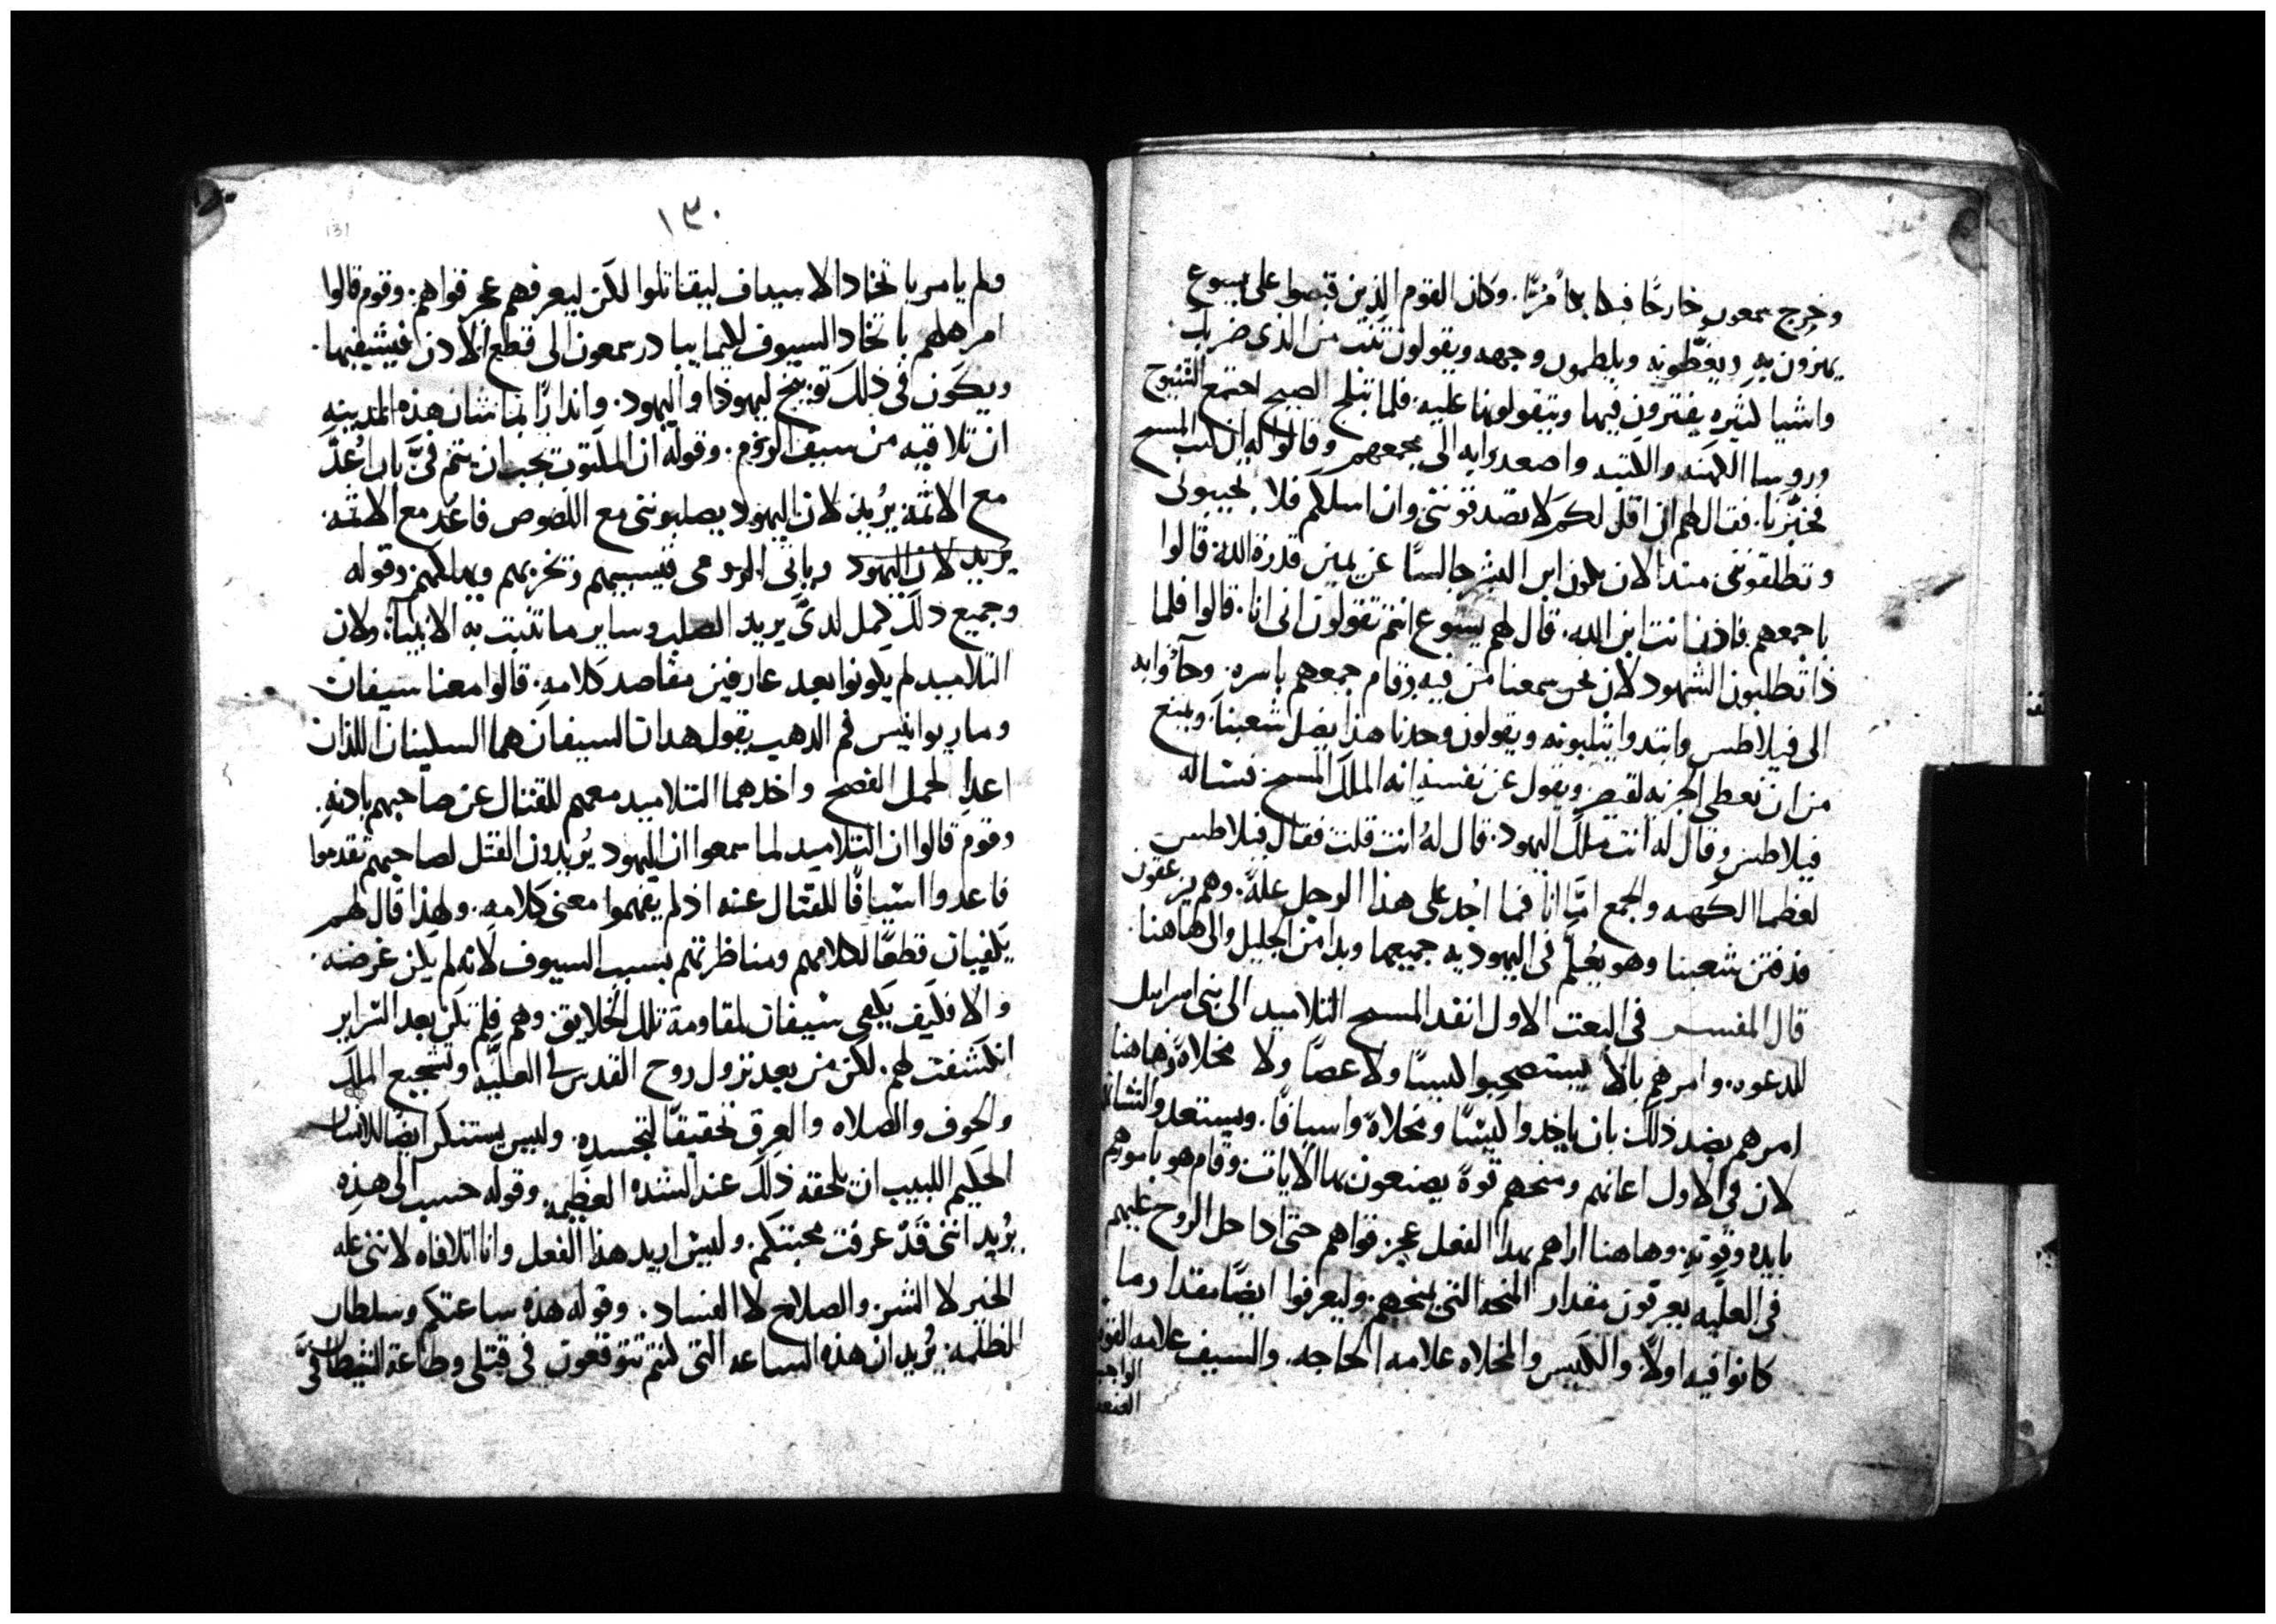 وخرج سمعون خارجًا فبكا بكاً مُرًّا. وكان القوم الذين قبصوا على يسوع
يهزون به ويغطونه ويلطمون وجهه ويقولون تنبت من الذى ضربك
واشيا كثيره يفترون فيها ويتقولونها عليه. فلما تبلج الصبح اجتمع الشيوخ
وروسا الكهنه والكتبه واصعدوا به الى مجمعهم وقالوا له ان كنت المسيح
فخبّرنا. فقال لهم ان اقل لكم لا تصدقوننى وان اسلكم فلا تجيبونى
وتطلقوننى منذ الان يكون ابن البشر جالسًا عن يمين قدرة الله. قالوا
باجمعهم فاذن انت ابن الله. قال لهم يسوع انتم تقولون انى انا. قالوا فلما
ذا نطلبون الشهود لان نحن سمعنا من فيه. وقام جمعهم باسره. وجآوا به
الى فيلاطس وابتدوا يثلبونه ويقولون وجدنا هذا يضل شعبنا. ويمنع
من ان نعطى الجزيه لقيصر ويقول عن نفسه انه الملك المسيح. فساله
فيلاطس وقال له انت ملك اليهود. قال لهُ انت قلت فقال فيلاطس
لعظما الكهنه والجمع امّا انا فما اجد على هذا الرجل علهً. وهم يزعقون
قد فتن شعبنا وهو يُعلّم فى اليهوديه جميعها وبدا من الجليل والى هاهنا.
قال المفسر فى البعث الاول انفد المسيح التلاميد الى بنى اسراييل
للدعوه. وامرهم بالا يستصحبوا كيسًا ولا عصًا ولا مخلاةً وهاهنا
امرهم بضد ذلك بان ياخدوا كيسًا ومخلاةً واسيافًا. ويستعدوا
لان فى الاول اعانهم ومنحهم قوةً يصنعون بها الايات وقام هو بامورهم
بايده وقوته. وهاهنا اراهم بهذا الفعل عجز قواهم حتى اداحل الروح عليهم
فى العليّه يعرفون مقدار المنحه التى يمنحهم. وليعرفوا ايضًا مقدار ما
كانوا فيه اولاً. والكيس والمخلاه علامه الحاجه. والسيف علامه القوه
١٣٠
131
ولم يامر باتخاد الاسياف ليقاتلوا لكن ليعرفهم عجز قواهم. وقوم قالوا
امرهم باتخاد السيوف لكيما يبادر سمعون الى قطع الادن فيشفيها.
ويكون فى ذلك توبيخ ليهودا واليهود. وانداراً بما شان هذه المدينه
ان تلاقيه من سيف الروم. وقوله ان المكتوب يجب ان يتم فىَّ بان اُعدَّ
مع الاثمة يُريد لان اليهود يصلبوننى مع اللصوص فاعد مع الاثمه.
يريد لان اليهود وياتى الرومى فيسبيهم وتخربهم ويهلكهم. وقوله
وجميع ذلك كمل لدىّ يريد الصلب وساير ما تنبت به الانبياء. ولان
التلاميد لم يكونوا بعد عارفين مقاصد كلامه. قالوا معنا سيفان
ومار يوانيس فم الدهب يقول هدان السيفان هما السكينان اللذان
اعدا لحمل الفصح واخدهما التلاميد معهم للقتال عن صاحبهم بادنه.
وقوم قالوا ان التلاميد لما سمعوا ان اليهود يُريدون القتل لصاحبهم تقدموا
فاعدوا اسيافًا للقتال عنه اد لم يفهموا معنى كلامه. ولهذا قال لهم
يكفيان قطعًا لكلامهم ومناظرتهم بسبب السيوف لانه لم يكن غرضه.
والا فكيف يكفى سيفان لمقاومة تلك الخلايق. وهم فلم تكن بعد السراير
انكشفت لهم. لكن من بعد نزول روح القدس فى العليّه وتشجيع الملك
والخوف والصلاه والعرق تحقيقًا لتجسده. وليس يستنكر ايضا للانسان
الحكيم اللبيب ان يلحقه ذلك عند الشده العظيمه. وقوله حسب الى هذه
يُريد اننى قد عرفت محبتكم. وليس اريد هذا الفعل وانا اتلافاه لاننى عله
الخير لا الشر. والصلاح لا الفساد. وقوله هذه ساعتكم وسلطان
الظلمه. يُريد ان هذه الساعه التى كنتم تتوقعون فى قتلى وطاعة الشيطان فىَّ